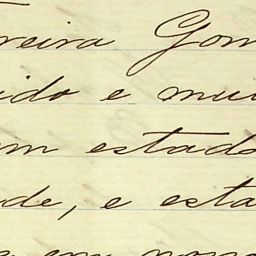 reira Gom
ido e mui
em estado
de, e esta